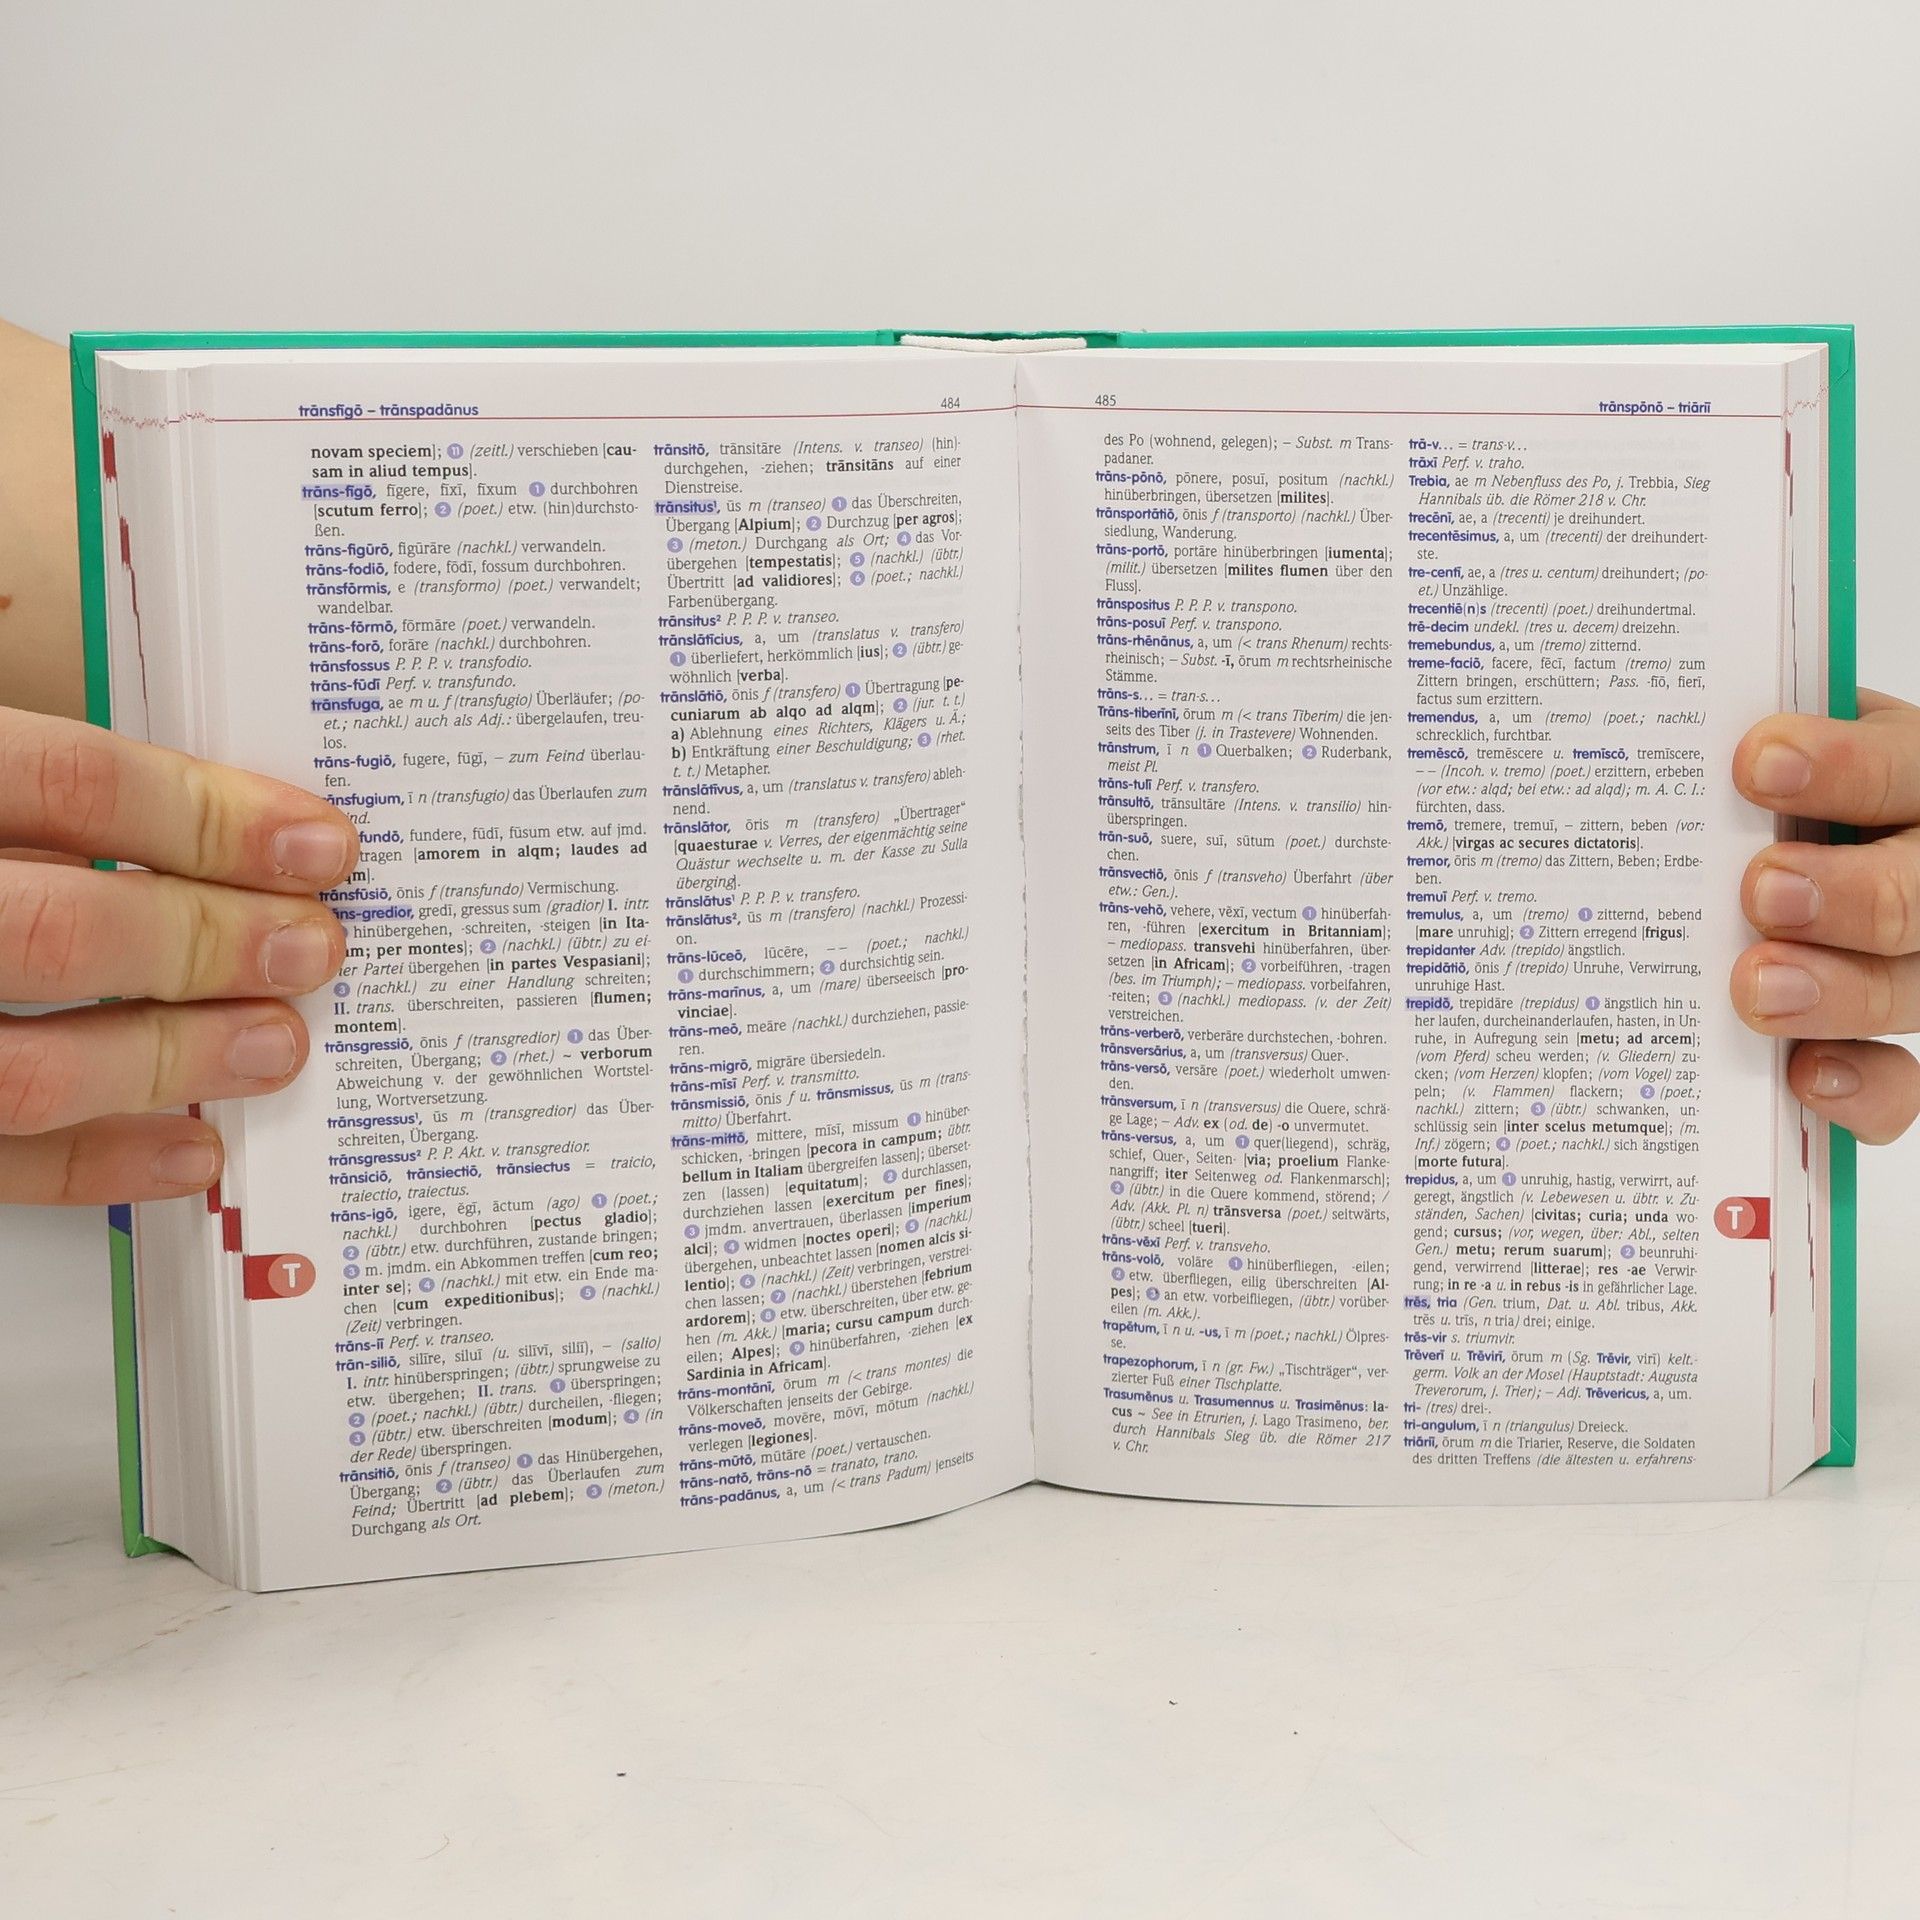 trānsfīgō – trānspadānus
484
novam speciem]; 11 (zeitl.) verschieben [cau-
sam in aliud tempus].
trāns-fīgō, fīgere, fīxī, fīxum 1 durchbohren
[scutum ferro]; 2 (poet.) etw. (hin)durchsto-
ßen.
trāns-figūrō, figūrāre (nachkl.) verwandeln.
trāns-fodiō, fodere, fōdī, fossum durchbohren.
trānsfōrmis, e (transformo) (poet.) verwandelt;
wandelbar.
trāns-fōrmō, fōrmāre (poet.) verwandeln.
trāns-forō, forāre (nachkl.) durchbohren.
trānsfossus P. P. P. v. transfodio.
trāns-fūdī Perf. v. transfundo.
trānsfuga, ae m u. f (transfugio) Überläufer; (po-
et.; nachkl.) auch als Adj.: übergelaufen, treu-
los.
trāns-fugiō, fugere, fūgī, – zum Feind überlau-
fen.
ānsfugium, ī n (transfugio) das Überlaufen zum
ind.
fundō, fundere, fūdī, fūsum etw. auf jmd.
tragen [amorem in alqm; laudes ad
qm].
trānsfūsiō, ōnis f (transfundo) Vermischung.
āns-gredior, gredī, gressus sum (gradior) I. intr.
hinübergehen, -schreiten, -steigen [in Ita-
am; per montes]; 2 (nachkl.) (übtr.) zu ei-
er Partei übergehen [in partes Vespasiani];
3 (nachkl.) zu einer Handlung schreiten;
II. trans. überschreiten, passieren [flumen;
montem].
trānsgressiō, ōnis f (transgredior) 1 das Über-
schreiten, Übergang; 2 (rhet.) ~ verborum
Abweichung v. der gewöhnlichen Wortstel-
lung, Wortversetzung.
trānsgressus¹, ūs m (transgredior) das Über-
schreiten, Übergang.
trānsgressus² P. P. Akt. v. transgredior.
trānsiciō, trānsiectiō, trānsiectus = traicio,
traiectio, traiectus.
trāns-igō, igere, ēgī, āctum (ago) 1 (poet.;
nachkl.) durchbohren [pectus gladio];
2 (übtr.) etw. durchführen, zustande bringen;
3 m. jmdm. ein Abkommen treffen [cum reo;
inter se]; 4 (nachkl.) mit etw. ein Ende ma-
chen [cum expeditionibus]; 5 (nachkl.)
(Zeit) verbringen.
trāns-iī Perf. v. transeo.
trān-siliō, silīre, siluī (u. silīvī, siliī), – (salio)
I. intr. hinüberspringen; (übtr.) sprungweise zu
etw. übergehen; II. trans. 1 überspringen;
2 (poet.; nachkl.) (übtr.) durcheilen, -fliegen;
3 (übtr.) etw. überschreiten [modum]; 4 (in
der Rede) überspringen.
trānsitiō, ōnis f (transeo) 1 das Hinübergehen,
Übergang; 2 (übtr.) das Überlaufen zum
Feind; Übertritt [ad plebem]; 3 (meton.)
Durchgang als Ort.
trānsitō, trānsitāre (Intens. v. transeo) (hin)-
durchgehen, -ziehen; trānsitāns auf einer
Dienstreise.
trānsitus¹, ūs m (transeo) 1 das Überschreiten,
Übergang [Alpium]; 2 Durchzug [per agros];
3 (meton.) Durchgang als Ort; 4 das Vor-
übergehen [tempestatis]; 5 (nachkl.) (übtr.)
Übertritt [ad validiores]; 6 (poet.; nachkl.)
Farbenübergang.
trānsitus² P. P. P. v. transeo.
trānslātīcius, a, um (translatus v. transfero)
1 überliefert, herkömmlich [ius]; 2 (übtr.) ge-
wöhnlich [verba].
trānslātiō, ōnis f (transfero) 1 Übertragung [pe-
cuniarum ab alqo ad alqm]; 2 (jur. t. t.)
a) Ablehnung eines Richters, Klägers u. Ä.;
b) Entkräftung einer Beschuldigung; 3 (rhet.
t. t.) Metapher.
trānslātīvus, a, um (translatus v. transfero) ableh-
nend.
trānslātor, ōris m (transfero) „Übertrager“
[quaesturae v. Verres, der eigenmächtig seine
Quästur wechselte u. m. der Kasse zu Sulla
überging].
trānslātus¹ P. P. P. v. transfero.
trānslātus², ūs m (transfero) (nachkl.) Prozessi-
on.
trāns-lūceō, lūcēre, – – (poet.; nachkl.)
1 durchschimmern; 2 durchsichtig sein.
trāns-marīnus, a, um (mare) überseeisch [pro-
vinciae].
trāns-meō, meāre (nachkl.) durchziehen, passie-
ren.
trāns-migrō, migrāre übersiedeln.
trāns-mīsī Perf. v. transmitto.
trānsmissiō, ōnis f u. trānsmissus, ūs m (trans-
mitto) Überfahrt.
trāns-mittō, mittere, mīsī, missum 1 hinüber-
schicken, -bringen [pecora in campum; übtr.
bellum in Italiam übergreifen lassen]; überset-
zen (lassen) [equitatum]; 2 durchlassen,
durchziehen lassen [exercitum per fines];
3 jmdm. anvertrauen, überlassen [imperium
alci]; 4 widmen [noctes operi]; 5 (nachkl.)
übergehen, unbeachtet lassen [nomen alcis si-
lentio]; 6 (nachkl.) (Zeit) verbringen, verstrei-
chen lassen; 7 (nachkl.) überstehen [febrium
ardorem]; 8 etw. überschreiten, über etw. ge-
hen (m. Akk.) [maria; cursu campum durch-
eilen; Alpes]; 9 hinüberfahren, -ziehen [ex
Sardinia in Africam].
trāns-montānī, ōrum m (< trans montes) die
Völkerschaften jenseits der Gebirge.
trāns-moveō, movēre, mōvī, mōtum (nachkl.)
verlegen [legiones].
trāns-mūtō, mūtāre (poet.) vertauschen.
trāns-natō, trāns-nō = tranato, trano.
trāns-padānus, a, um (< trans Padum) jenseits
485
trānspōnō – triāriī
des Po (wohnend, gelegen); – Subst. m Trans-
padaner.
trāns-pōnō, pōnere, posuī, positum (nachkl.)
hinüberbringen, übersetzen [milites].
trānsportātiō, ōnis f (transporto) (nachkl.) Über-
siedlung, Wanderung.
trāns-portō, portāre hinüberbringen [iumenta];
(milit.) übersetzen [milites flumen über den
Fluss].
trānspositus P. P. P. v. transpono.
trāns-posuī Perf. v. transpono.
trāns-rhēnānus, a, um (< trans Rhenum) rechts-
rheinisch; – Subst. -ī, ōrum m rechtsrheinische
Stämme.
trāns-s… = tran-s…
Trāns-tiberīnī, ōrum m (< trans Tiberim) die jen-
seits des Tiber (j. in Trastevere) Wohnenden.
trānstrum, ī n 1 Querbalken; 2 Ruderbank,
meist Pl.
trāns-tulī Perf. v. transfero.
trānsultō, trānsultāre (Intens. v. transilio) hin-
überspringen.
trān-suō, suere, suī, sūtum (poet.) durchste-
chen.
trānsvectiō, ōnis f (transveho) Überfahrt (über
etw.: Gen.).
trāns-vehō, vehere, vēxī, vectum 1 hinüberfah-
ren, -führen [exercitum in Britanniam];
– mediopass. transvehi hinüberfahren, über-
setzen [in Africam]; 2 vorbeiführen, -tragen
(bes. im Triumph); – mediopass. vorbeifahren,
-reiten; 3 (nachkl.) mediopass. (v. der Zeit)
verstreichen.
trāns-verberō, verberāre durchstechen, -bohren.
trānsversārius, a, um (transversus) Quer-.
trāns-versō, versāre (poet.) wiederholt umwen-
den.
trānsversum, ī n (transversus) die Quere, schrä-
ge Lage; – Adv. ex (od. de) -o unvermutet.
trāns-versus, a, um 1 quer(liegend), schräg,
schief, Quer-, Seiten- [via; proelium Flanke-
nangriff; iter Seitenweg od. Flankenmarsch];
2 (übtr.) in die Quere kommend, störend; /
Adv. (Akk. Pl. n) trānsversa (poet.) seitwärts,
(übtr.) scheel [tueri].
trāns-vēxī Perf. v. transveho.
trāns-volō, voläre 1 hinüberfliegen, -eilen;
2 etw. überfliegen, eilig überschreiten [Al-
pes]; 3 an etw. vorbeifliegen, (übtr.) vorüber-
eilen (m. Akk.).
trapētum, ī n u. -us, ī m (poet.; nachkl.) Ölpres-
se.
trapezophorum, ī n (gr. Fw.) „Tischträger“, ver-
zierter Fuß einer Tischplatte.
Trasumēnus u. Trasumennus u. Trasimēnus: la-
cus ~ See in Etrurien, j. Lago Trasimeno, ber.
durch Hannibals Sieg üb. die Römer 217
v. Chr.
trā-v… = trans-v…
trāxī Perf. v. traho.
Trebia, ae m Nebenfluss des Po, j. Trebbia, Sieg
Hannibals üb. die Römer 218 v. Chr.
trecēnī, ae, a (trecenti) je dreihundert.
trecentēsimus, a, um (trecenti) der dreihundert-
ste.
tre-centī, ae, a (tres u. centum) dreihundert; (po-
et.) Unzählige.
trecentiē(n)s (trecenti) (poet.) dreihundertmal.
trē-decim undekl. (tres u. decem) dreizehn.
tremebundus, a, um (tremo) zitternd.
treme-faciō, facere, fēcī, factum (tremo) zum
Zittern bringen, erschüttern; Pass. -fīō, fierī,
factus sum erzittern.
tremendus, a, um (tremo) (poet.; nachkl.)
schrecklich, furchtbar.
tremēscō, tremēscere u. tremīscō, tremīscere,
– – (Incoh. v. tremo) (poet.) erzittern, erbeben
(vor etw.: alqd; bei etw.: ad alqd); m. A. C. I.:
fürchten, dass.
tremō, tremere, tremuī, – zittern, beben (vor:
Akk.) [virgas ac secures dictatoris].
tremor, ōris m (tremo) das Zittern, Beben; Erdbe-
ben.
tremuī Perf. v. tremo.
tremulus, a, um (tremo) 1 zitternd, bebend
[mare unruhig]; 2 Zittern erregend [frigus].
trepidanter Adv. (trepido) ängstlich.
trepidātiō, ōnis f (trepido) Unruhe, Verwirrung,
unruhige Hast.
trepidō, trepidāre (trepidus) 1 ängstlich hin u.
her laufen, durcheinanderlaufen, hasten, in Un-
ruhe, in Aufregung sein [metu; ad arcem];
(vom Pferd) scheu werden; (v. Gliedern) zu-
cken; (vom Herzen) klopfen; (vom Vogel) zap-
peln; (v. Flammen) flackern; 2 (poet.;
nachkl.) zittern; 3 (übtr.) schwanken, un-
schlüssig sein [inter scelus metumque]; (m.
Inf.) zögern; 4 (poet.; nachkl.) sich ängstigen
[morte futura].
trepidus, a, um 1 unruhig, hastig, verwirrt, auf-
geregt, ängstlich (v. Lebewesen u. übtr. v. Zu-
ständen, Sachen) [civitas; curia; unda wo-
gend; cursus; (vor, wegen, über: Abl., selten
Gen.) metu; rerum suarum]; 2 beunruhi-
gend, verwirrend [litterae]; res -ae Verwir-
rung; in re -a u. in rebus -is in gefährlicher Lage.
trēs, tria (Gen. trium, Dat. u. Abl. tribus, Akk.
trēs u. trīs, n tria) drei; einige.
trēs-vir s. triumvir.
Trēverī u. Trēvirī, ōrum m (Sg. Trēvir, virī) kelt.-
germ. Volk an der Mosel (Hauptstadt: Augusta
Treverorum, j. Trier); – Adj. Trēvericus, a, um.
tri- (tres) drei-.
tri-angulum, ī n (triangulus) Dreieck.
triāriī, ōrum m die Triarier, Reserve, die Soldaten
des dritten Treffens (die ältesten u. erfahrens-
T
T